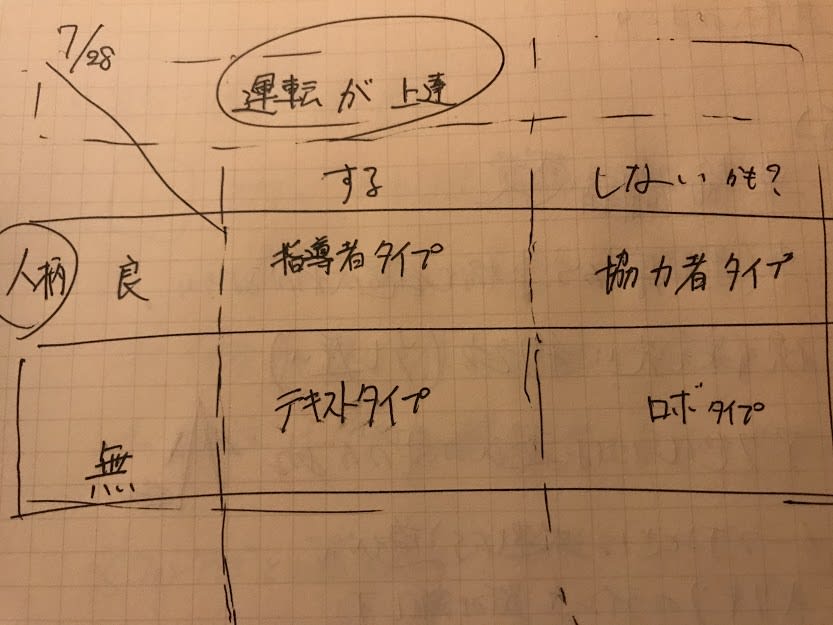 7/28
運転が上達
する
しないかも?
人柄
良
指導者タイプ
協力者タイプ
無
テキストタイプ
ロボタイプ